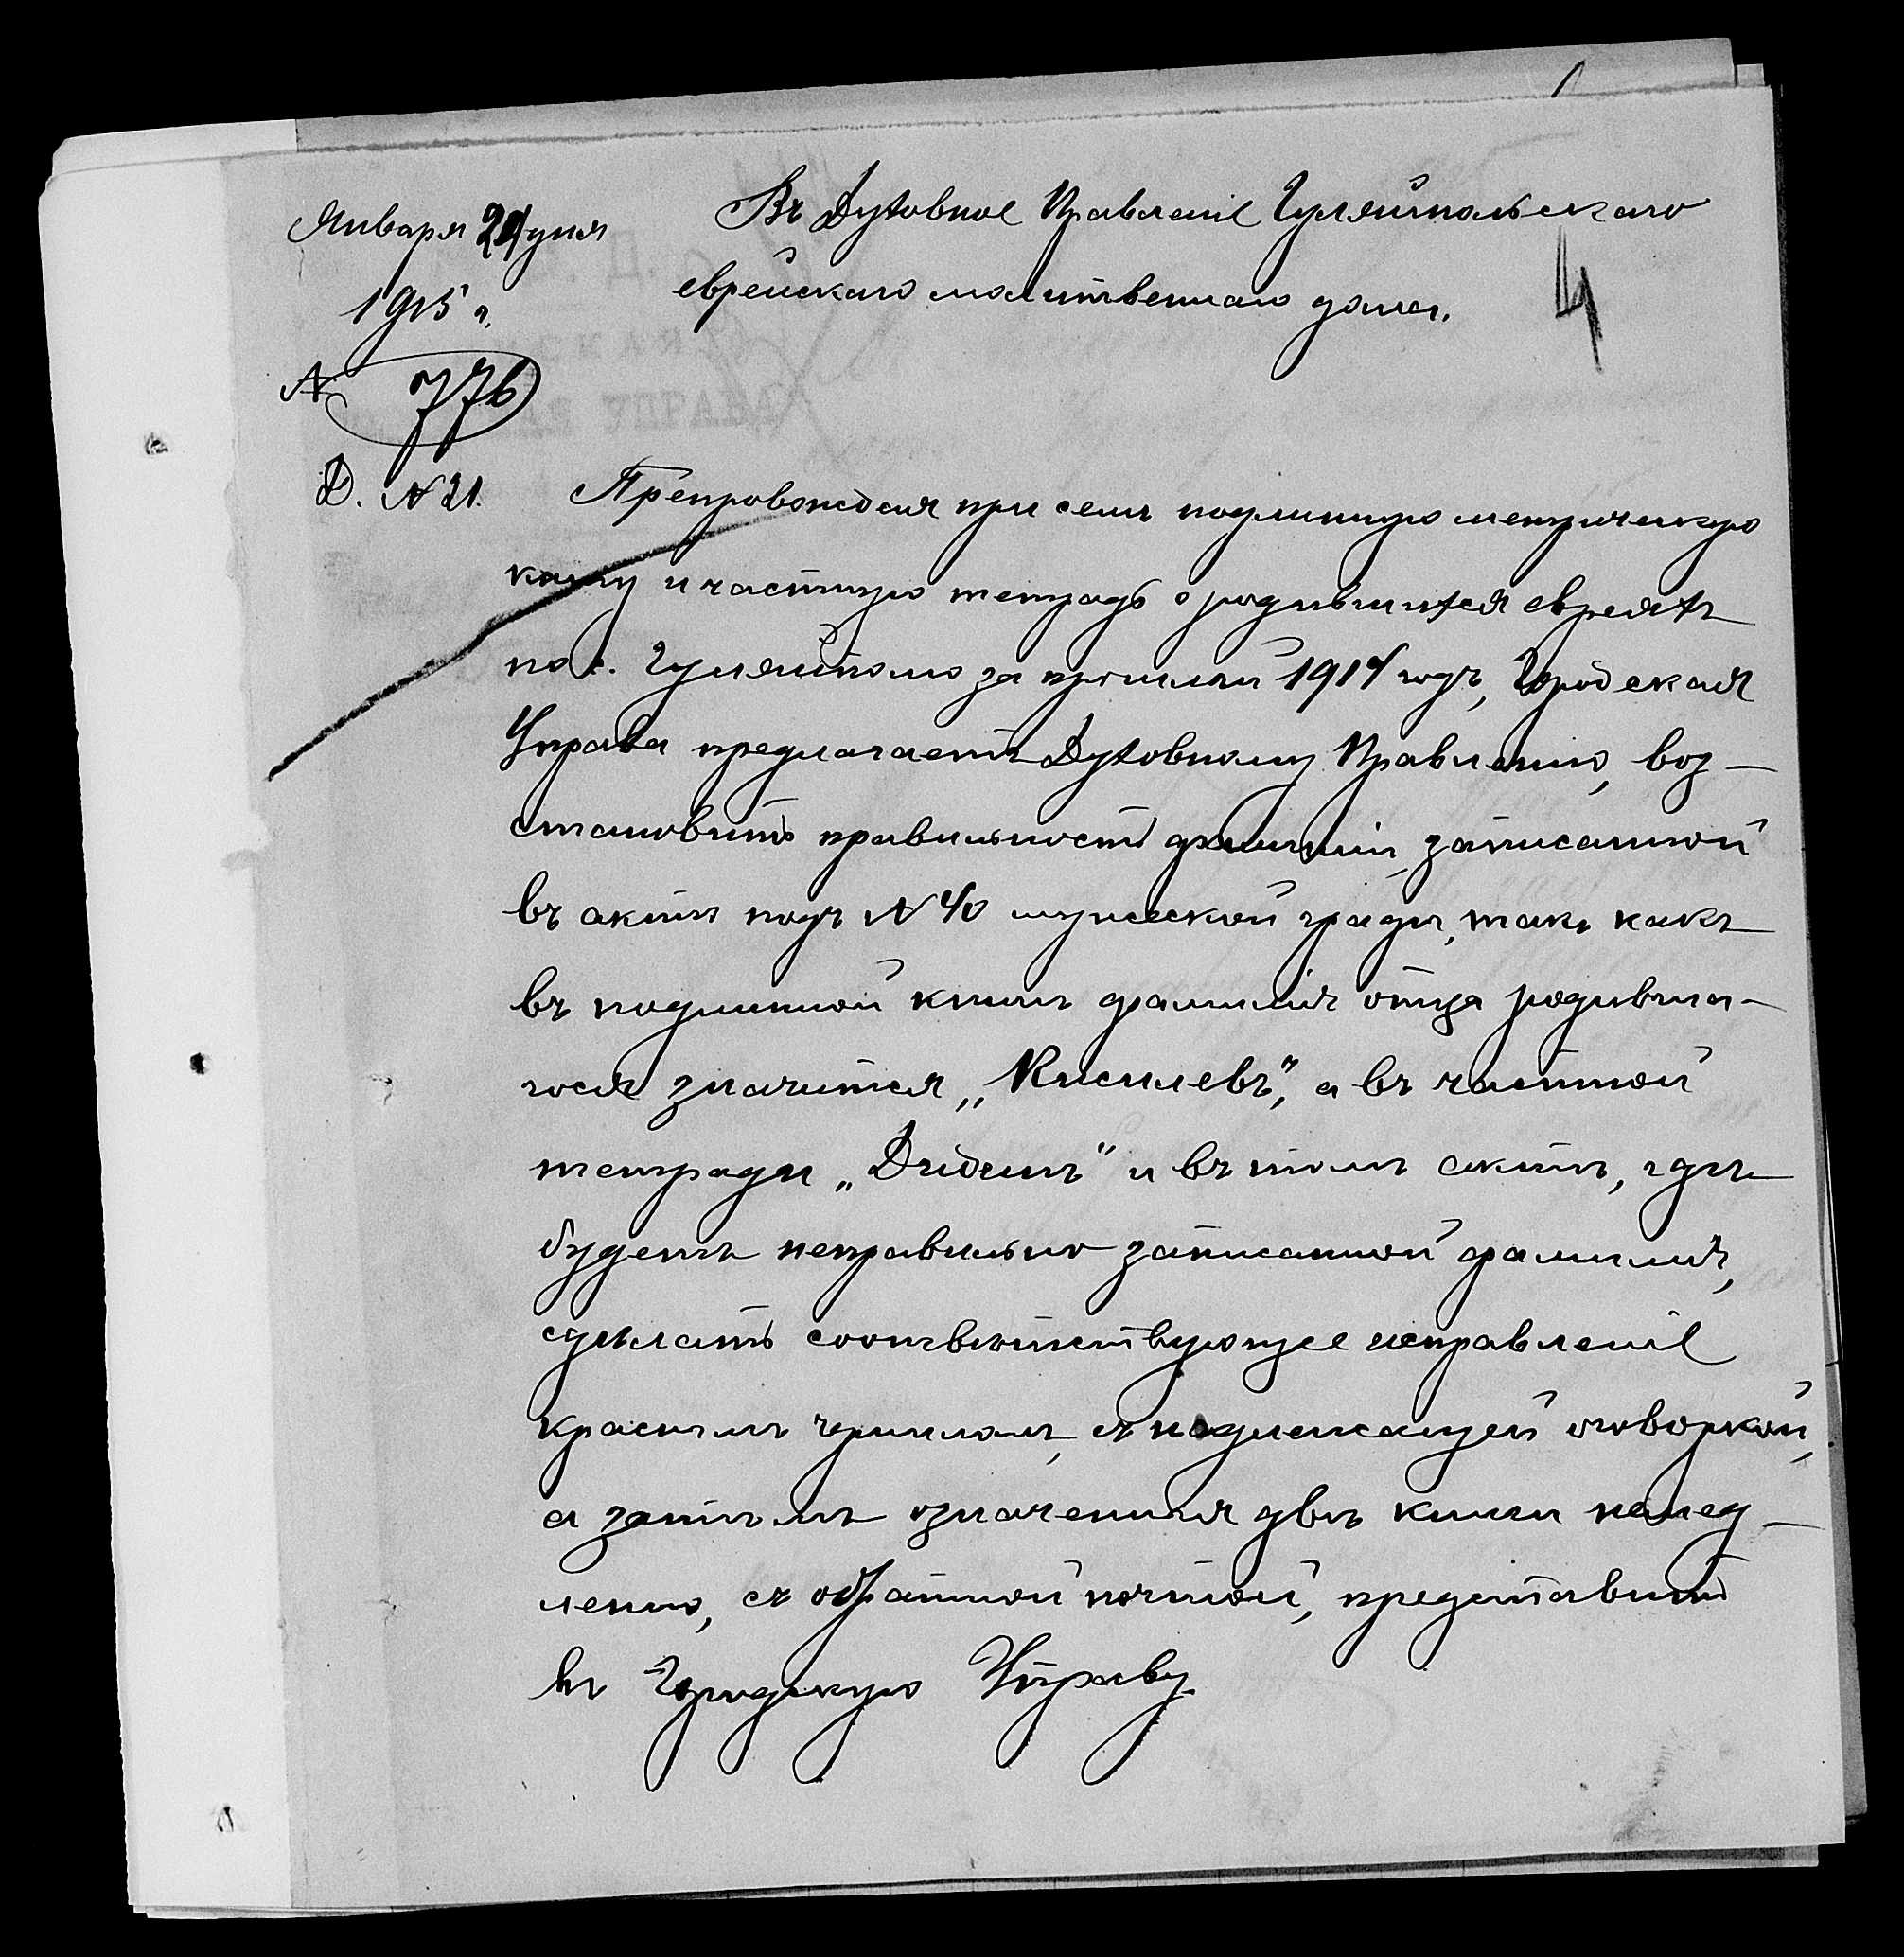 Января 24 дня
1915 г.
№ 776
Д. № 21.
Въ Духовное Правленіе Гуляйпольскаго
еврейскаго молитвеннаго дома.
4
Препровождая при семъ подлинную метрическую
книгу и частную тетрадь о родившихся евреяхъ
по с. Гуляйполю за прошлый 1914 годъ, Городская
Управа предлагаетъ Духовному Правленію, воз-
становить правильность фамиліи, записанной
въ актѣ подъ № 40 мужеской графы, такъ какъ
въ подлинной книгѣ фамилія отца родивша-
гося значится „Киселевъ", а въ частной
тетради „Дидинъ" и въ томъ актѣ, гдѣ
будетъ неправильно записанной фамилія,
сдѣлать соотвѣтствующее исправленіе
краснымъ черниломъ, съ надлежащей оговоркой,
а затѣмъ означенныя двѣ книги немед-
ленно, съ обратной почтой, представить
въ Городскую Управу.